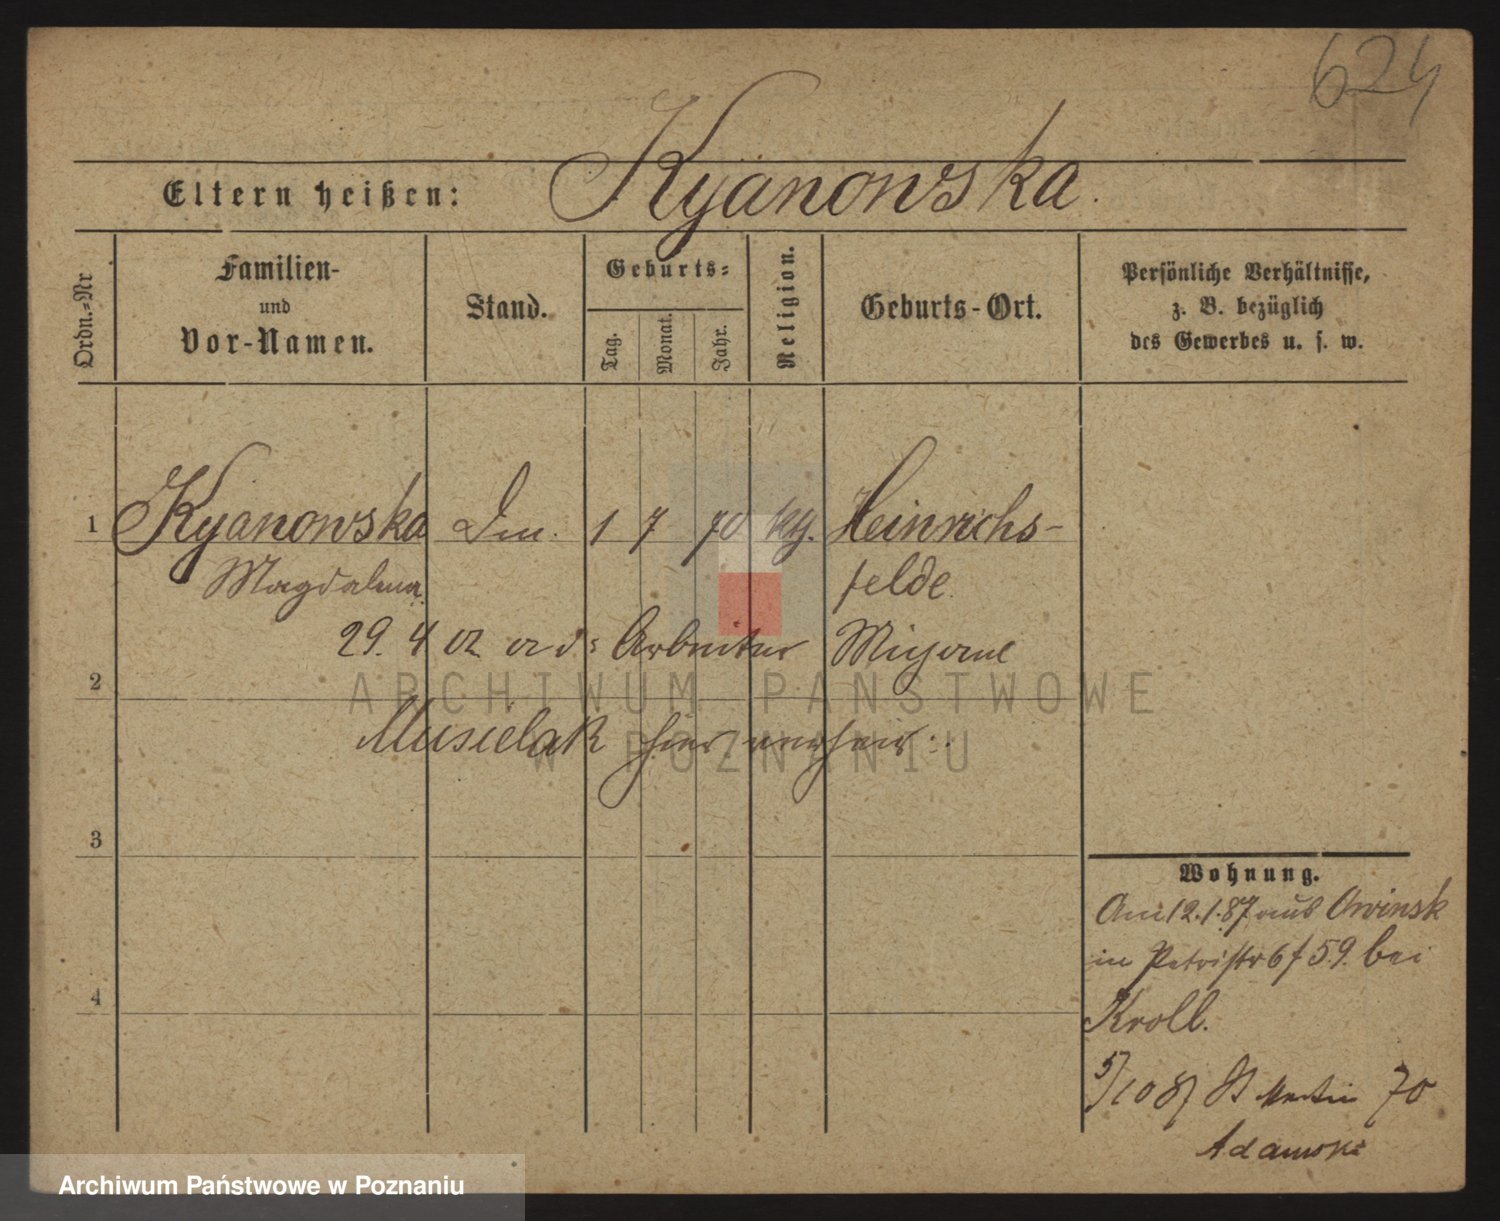 624
Eltern heißen: Kyanowska.
Ordn.-Nr
Familien-
und
Vor-Namen.
Stand.
Geburts-
Tag.
Monat.
Jahr.
Religion.
Geburts-Ort.
Persönliche Verhältnisse,
z. B. bezüglich
des Gewerbes u. s. w.
1 Kyanowska 1 7 70 Heinrichs-
Magdalena felde
29. 4 02 Arbeiter
2
ARCHIWUM PAŃSTWOWE
Musielak hier
W POZNANIU
3
Wohnung.
Am 12.1.87 aus Owinsk
in Petristr 6 59. bei
4
Kroll.
5/10 87 St Martin 70
Adamski
Archiwum Państwowe w Poznaniu